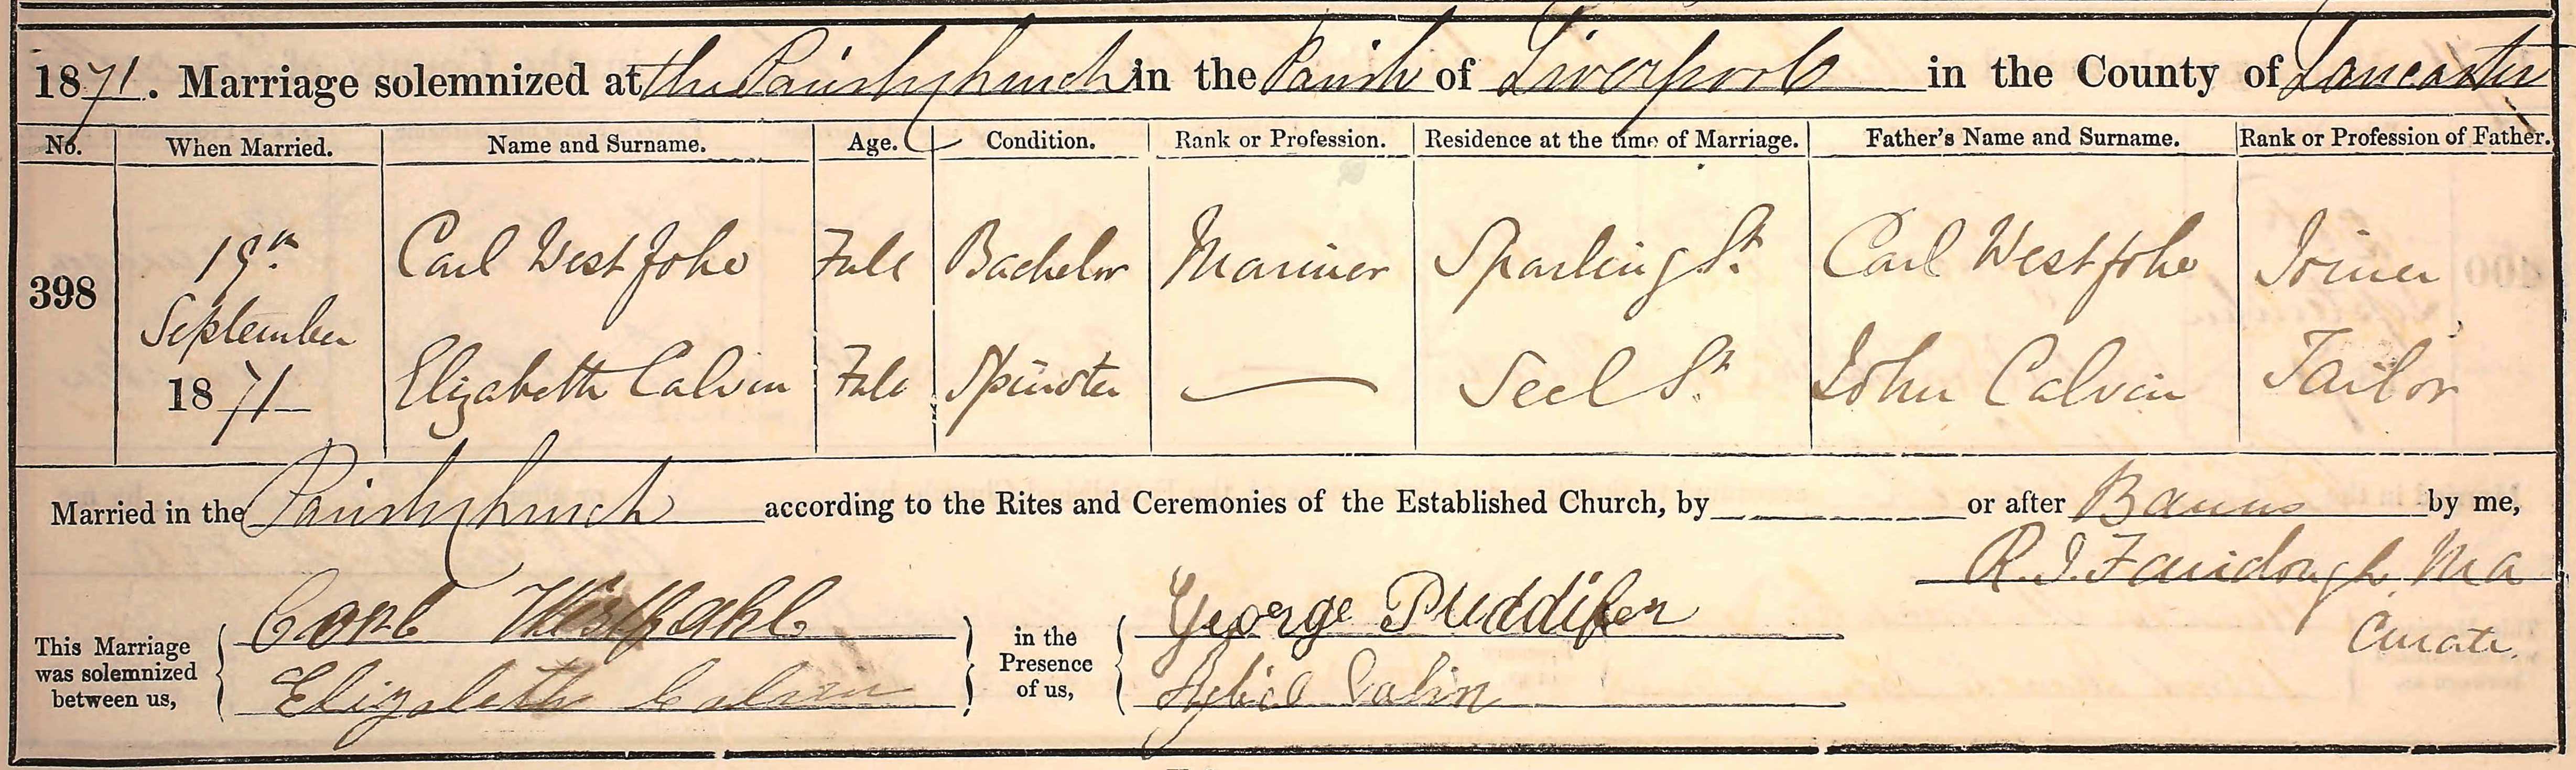 1871. Marriage solemnized at the Parish Church in the Parish of Liverpool in the County of Lancaster
No. When Married. Name and Surname. Age. Condition. Rank or Profession. Residence at the time of Marriage. Father's Name and Surname. Rank or Profession of Father.
19th Carl West Johe Full Bachelor Mariner Sparling St. Carl Westfohe Joiner
398
September
1871 Elizabeth Calvin Full Spinster — Seel St. John Calvin Tailor
Married in the Parish Church according to the Rites and Ceremonies of the Established Church, by or after Banns by me,
R. J. Fairclough, MA
Curate.
This Marriage was solemnized between us, Carl Westfahl in the Presence of us, George Puddifer
Elizabeth Calvin